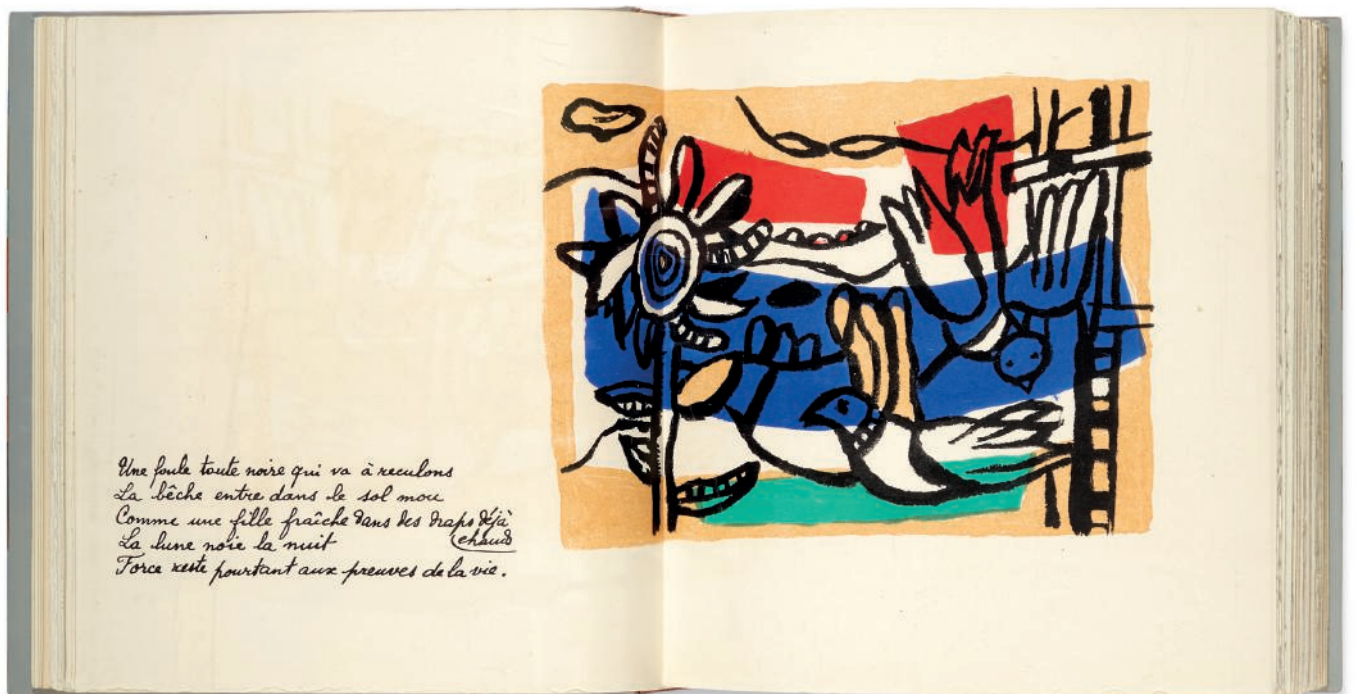 Une foule toute noire qui va à reculons
La bêche entre dans le sol mou
Comme une fille fraîche dans des draps déjà
chauds
La lune noie la nuit
Force reste pourtant aux preuves de la vie.